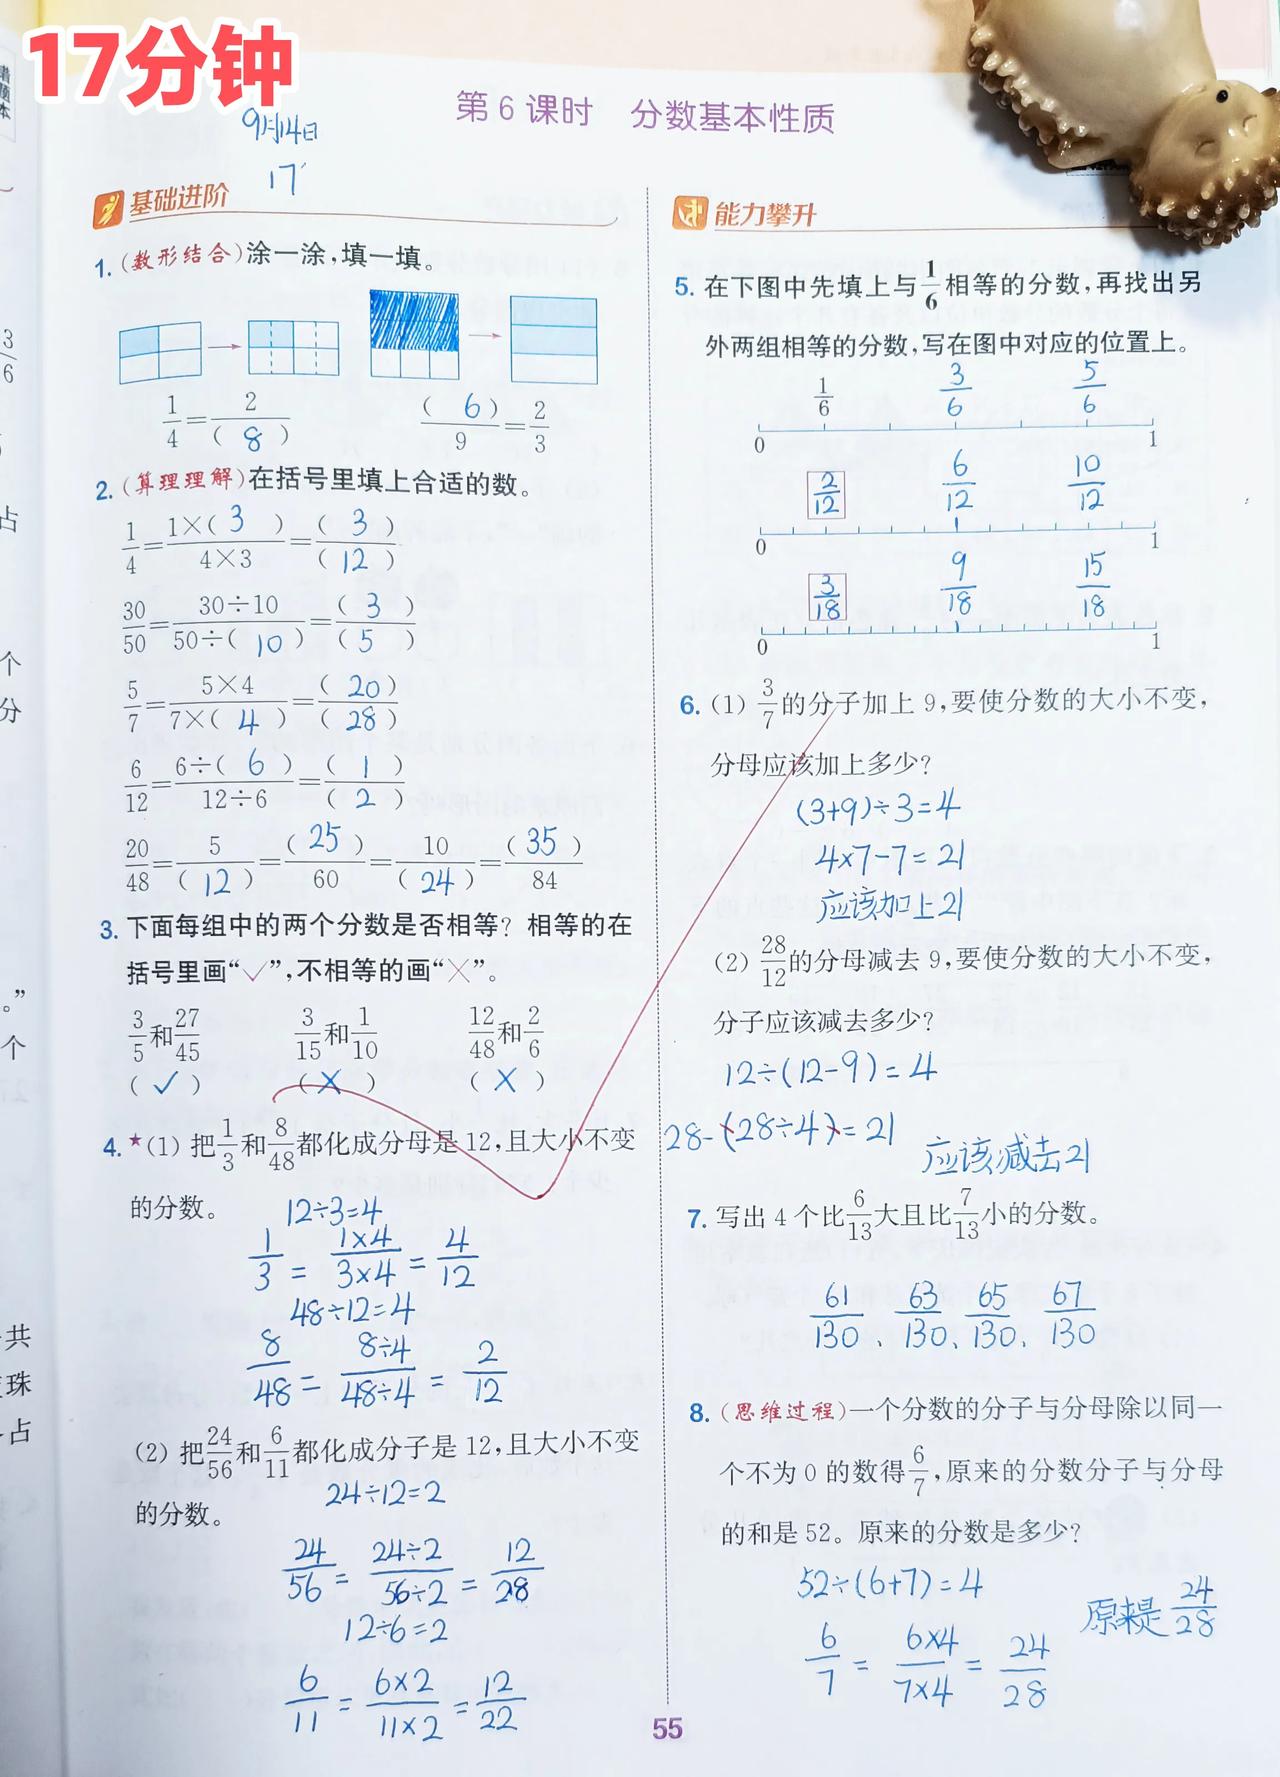 17分钟
第6课时 分数基本性质
9月14日
17'
基础进阶
1. (数形结合)涂一涂,填一填。
1/4=2/(8) (6)/9=2/3
2. (算理理解)在括号里填上合适的数。
1/4=1×(3)/4×3=(3)/(12)
30/50=30÷10/50÷(10)=(3)/(5)
5/7=5×4/7×(4)=(20)/(28)
6/12=6÷(6)/12÷6=(1)/(2)
20/48=5/(12)=(25)/60=10/(24)=(35)/84
3. 下面每组中的两个分数是否相等?相等的在
括号里画“✓”,不相等的画“×”。
3/5和27/45 3/15和1/10 12/48和2/6
(✓) (×) (×)
4. ★(1) 把1/3和8/48都化成分母是12,且大小不变
的分数。
12÷3=4
1/3=1×4/3×4=4/12
48÷12=4
8/48=8÷4/48÷4=2/12
(2) 把24/56和6/11都化成分子是12,且大小不变
的分数。
24÷12=2
24/56=24÷2/56÷2=12/28
12÷6=2
6/11=6×2/11×2=12/22
能力攀升
5. 在下图中先填上与1/6相等的分数,再找出另
外两组相等的分数,写在图中对应的位置上。
1/6 3/6 5/6
0 1
2/12 6/12 10/12
0 1
3/18 9/18 15/18
0 1
6. (1) 3/7的分子加上9,要使分数的大小不变,
分母应该加上多少?
(3+9)÷3=4
4×7-7=21
应该加上21
(2) 28/12的分母减去9,要使分数的大小不变,
分子应该减去多少?
12÷(12-9)=4
28-(28÷4)=21
应该减去21
7. 写出4个比6/13大且比7/13小的分数。
61/130、63/130、65/130、67/130
8. (思维过程)一个分数的分子与分母除以同一
个不为0的数得6/7,原来的分数分子与分母
的和是52。原来的分数是多少?
52÷(6+7)=4
6/7=6×4/7×4=24/28
原来是24/28
55